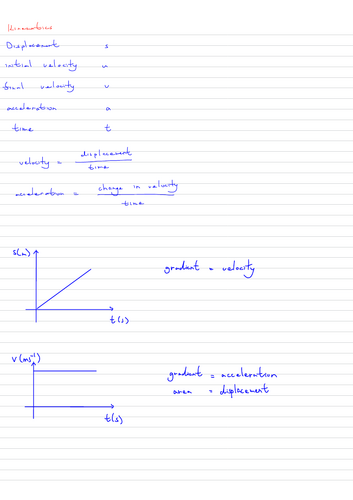 Kinematics
Displacement s
initial velocity u
final velocity v
acceleration a
time t
velocity = displacement / time
acceleration = change in velocity / time
s(m)
gradient = velocity
t(s)
v(ms⁻¹)
gradient = acceleration
area = displacement
t(s)